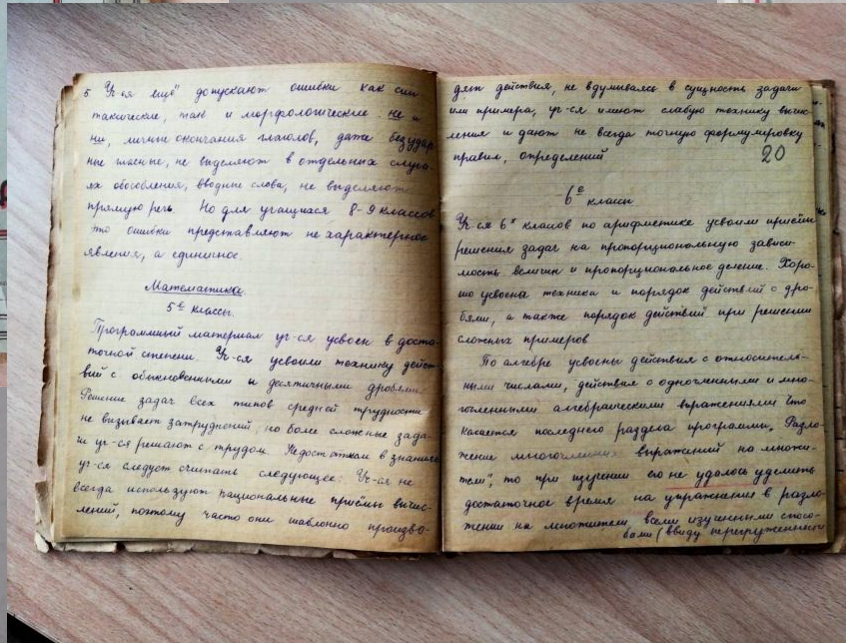 5. Уч-ся ещё допускают ошибки как син-
таксические, так и морфологические не и
ни, личные окончания глаголов, даже безудар
ные гласные, не выделяют в отдельных случа-
ях обособления, вводные слова, не выделяют
прямую речь. Но для учащихся 8-9 классов
это ошибки представляют не характерное
явления, а единичное.
Математика.
5ые классы.
Программный материал уч-ся усвоен в доста-
точной степени. Уч-ся усвоили технику дейст-
вий с обыкновенными и десятичными дробями.
Решение задач всех типов средней трудности
не вызывает затруднений, но более сложные зада-
чи уч-ся решают с трудом. Недостатком в знаниях
уч-ся следует считать следующее: Уч-ся не
всегда используют рациональные приёмы вычис-
лений, поэтому часто они шаблонно произво-
дят действия, не вдумываясь в сущность задачи
или примера, уч-ся имеют слабую технику вычис-
ления и дают не всегда точную формулировку
правил, определений
20
6ые классы
Уч-ся 6х класов по арифметике усвоили приёмы
решения задач на пропорциональную зависи-
мость величин и пропорциональное деление. Хоро-
шо усвоены техника и порядок действий с дро-
бями, а также порядок действий при решении
сложных примеров
По алгебре усвоены действия с относитель-
ными числами, действия с одночленными и мно-
гочленными алгебраическими выражениями Что
касается последнего раздела программы „Разло-
жение многочленных выражений на множи-
тели", то при изучении его не удалось уделить
достаточное время на упражнения в разло-
жении на множители, всеми изученными спосо-
бами (ввиду перегруженности